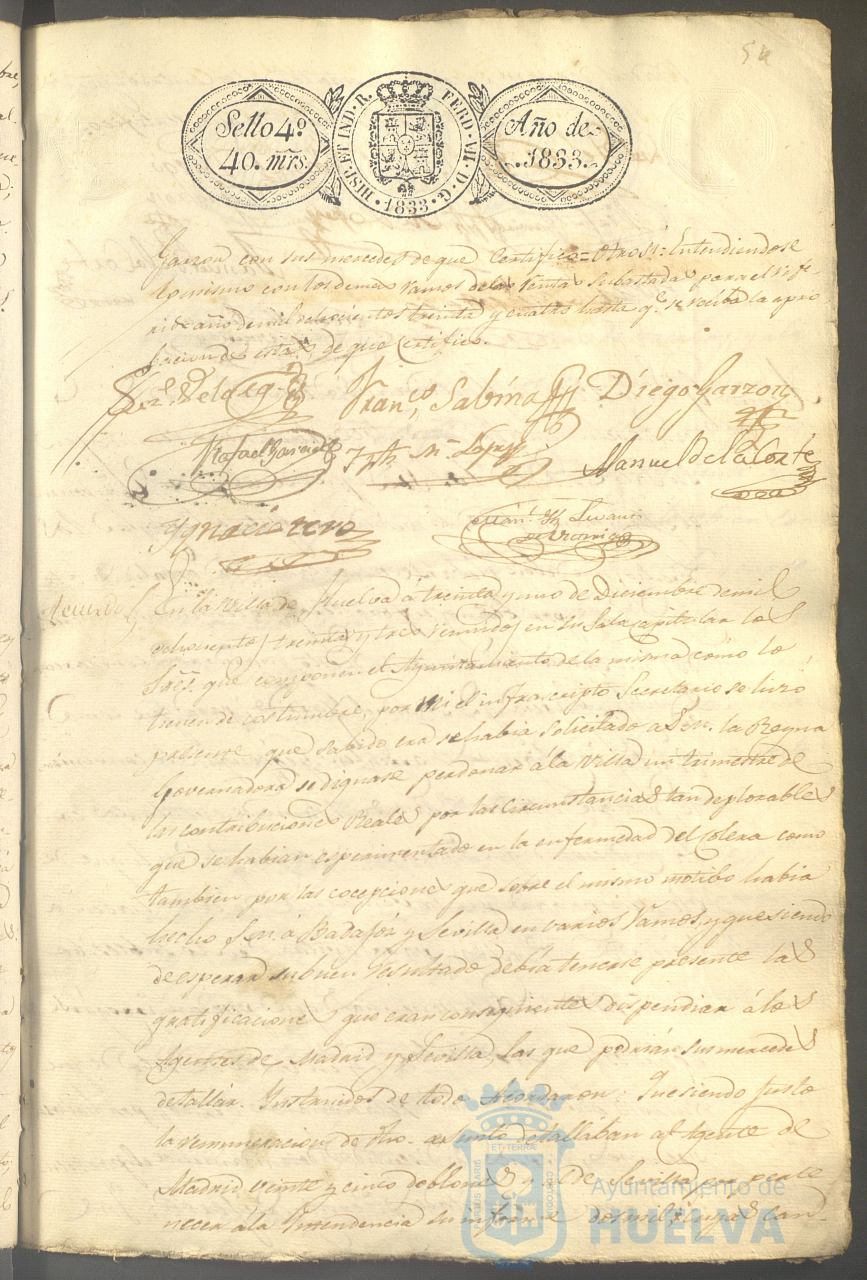 54
Sello 4º
40. mrs.
HISP. ET IND. R. FERD. VII. D. G. 1833
Año de
1833.
Garzon con sus mercedes de que Certifico = Otrosi: Entendiendose
lo mismo con los demas ramos de las rentas subastadas para el refe-
rido año de mil ochocientos treinta y cuatro hasta qe. se reciba la apro-
bacion de estas, de que certifico.
Velazqz
Francco Sabina
Diego Garzon
Rafael Garcia
Lopez
Manuel de la Corte
Ygnacio rero
Acuerdo
En la villa de Huelva á treinta y uno de Diciembre de mil
ochocientos treinta y tres reunidos en su Sala capitular los
Sres. que componen el Ayuntamiento de la misma como lo
tienen de costumbre, por mi el infrascripto Secretario se hizo
presente, que sabido era se habia solicitado a S. M. la Reyna
Governadora se dignase perdonar á la villa un trimestre de
las contribuciones Reales por las circunstancias tan deplorables
que se habian esperimentado en la enfermedad del Colera como
tambien por las ecepciones que sobre el mismo motibo habia
hecho S. M. á Badajóz y Sevilla en varios ramos, y que siendo
de esperar un buen resultado debia tenerse presente las
gratificaciones que eran consiguientes dispendiar á los
Agentes de Madrid y Sevilla, las que podrian sus mercedes
detallar. Instruidos de todo Acordaron: Que siendo justo
la remuneracion de dho. asunto detallaban al Agente de
Madrid veinte y cinco doblones y al De Sevilla
necer á la Intendencia su informe dos mil can-
Ayuntamiento de
HUELVA